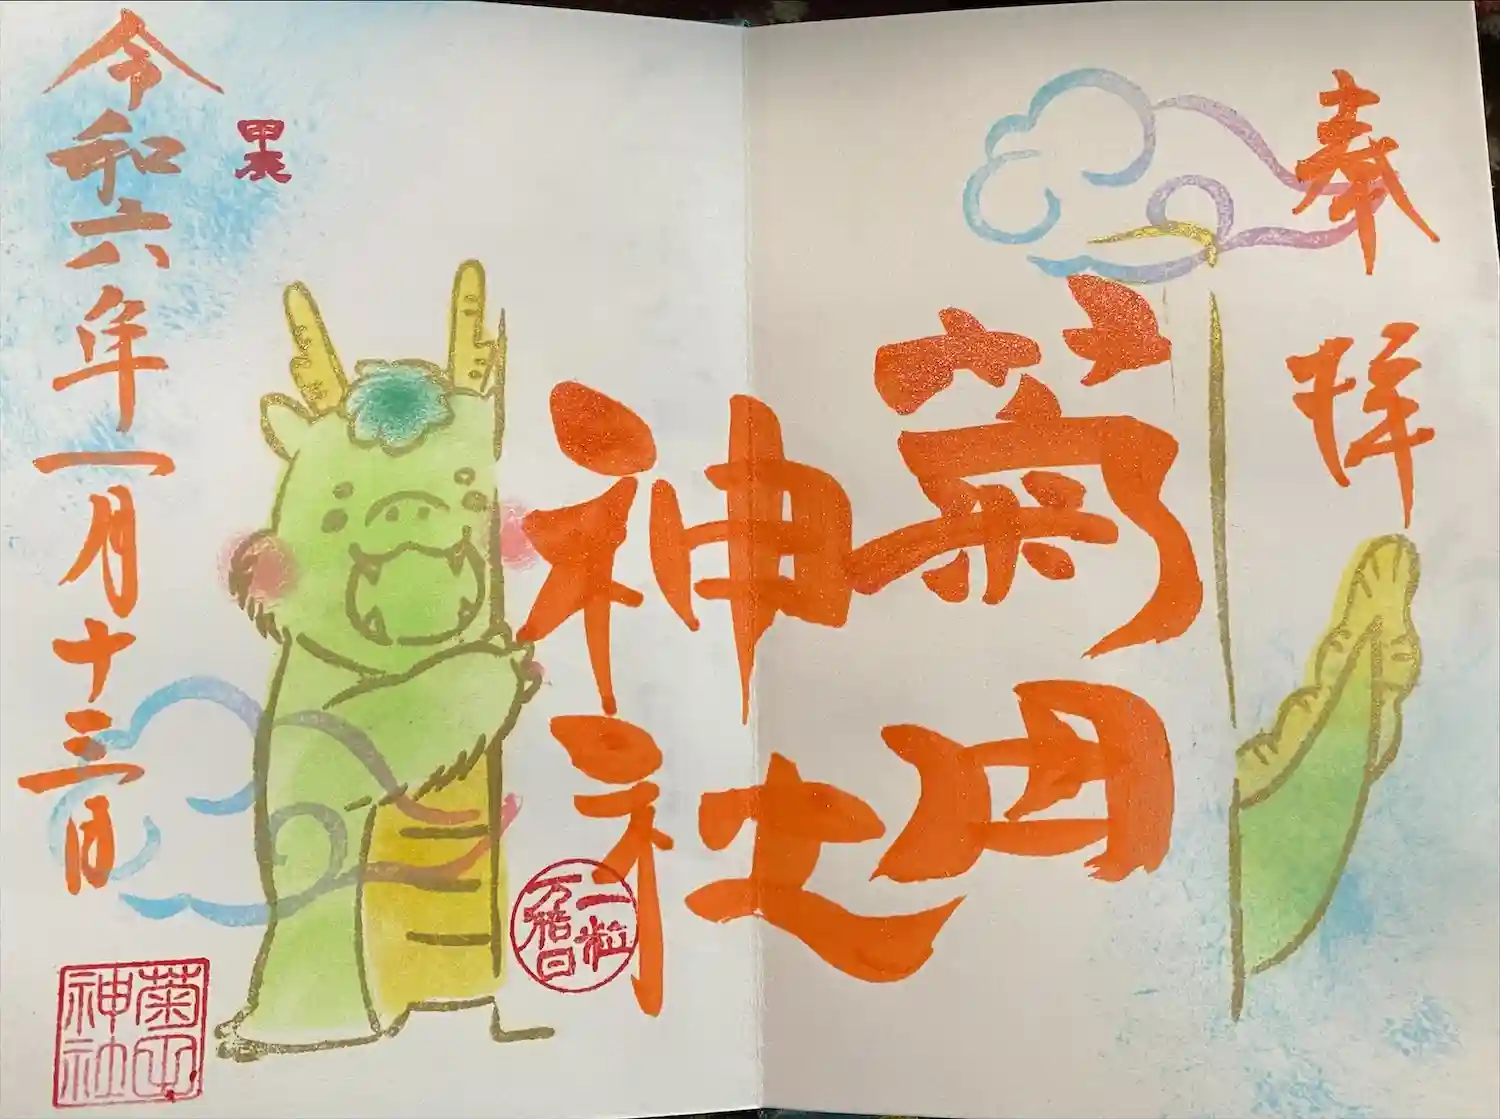 奉拝
菊田
神社
一粒
万倍日
甲辰
令和六年一月十三日
菊田
神社